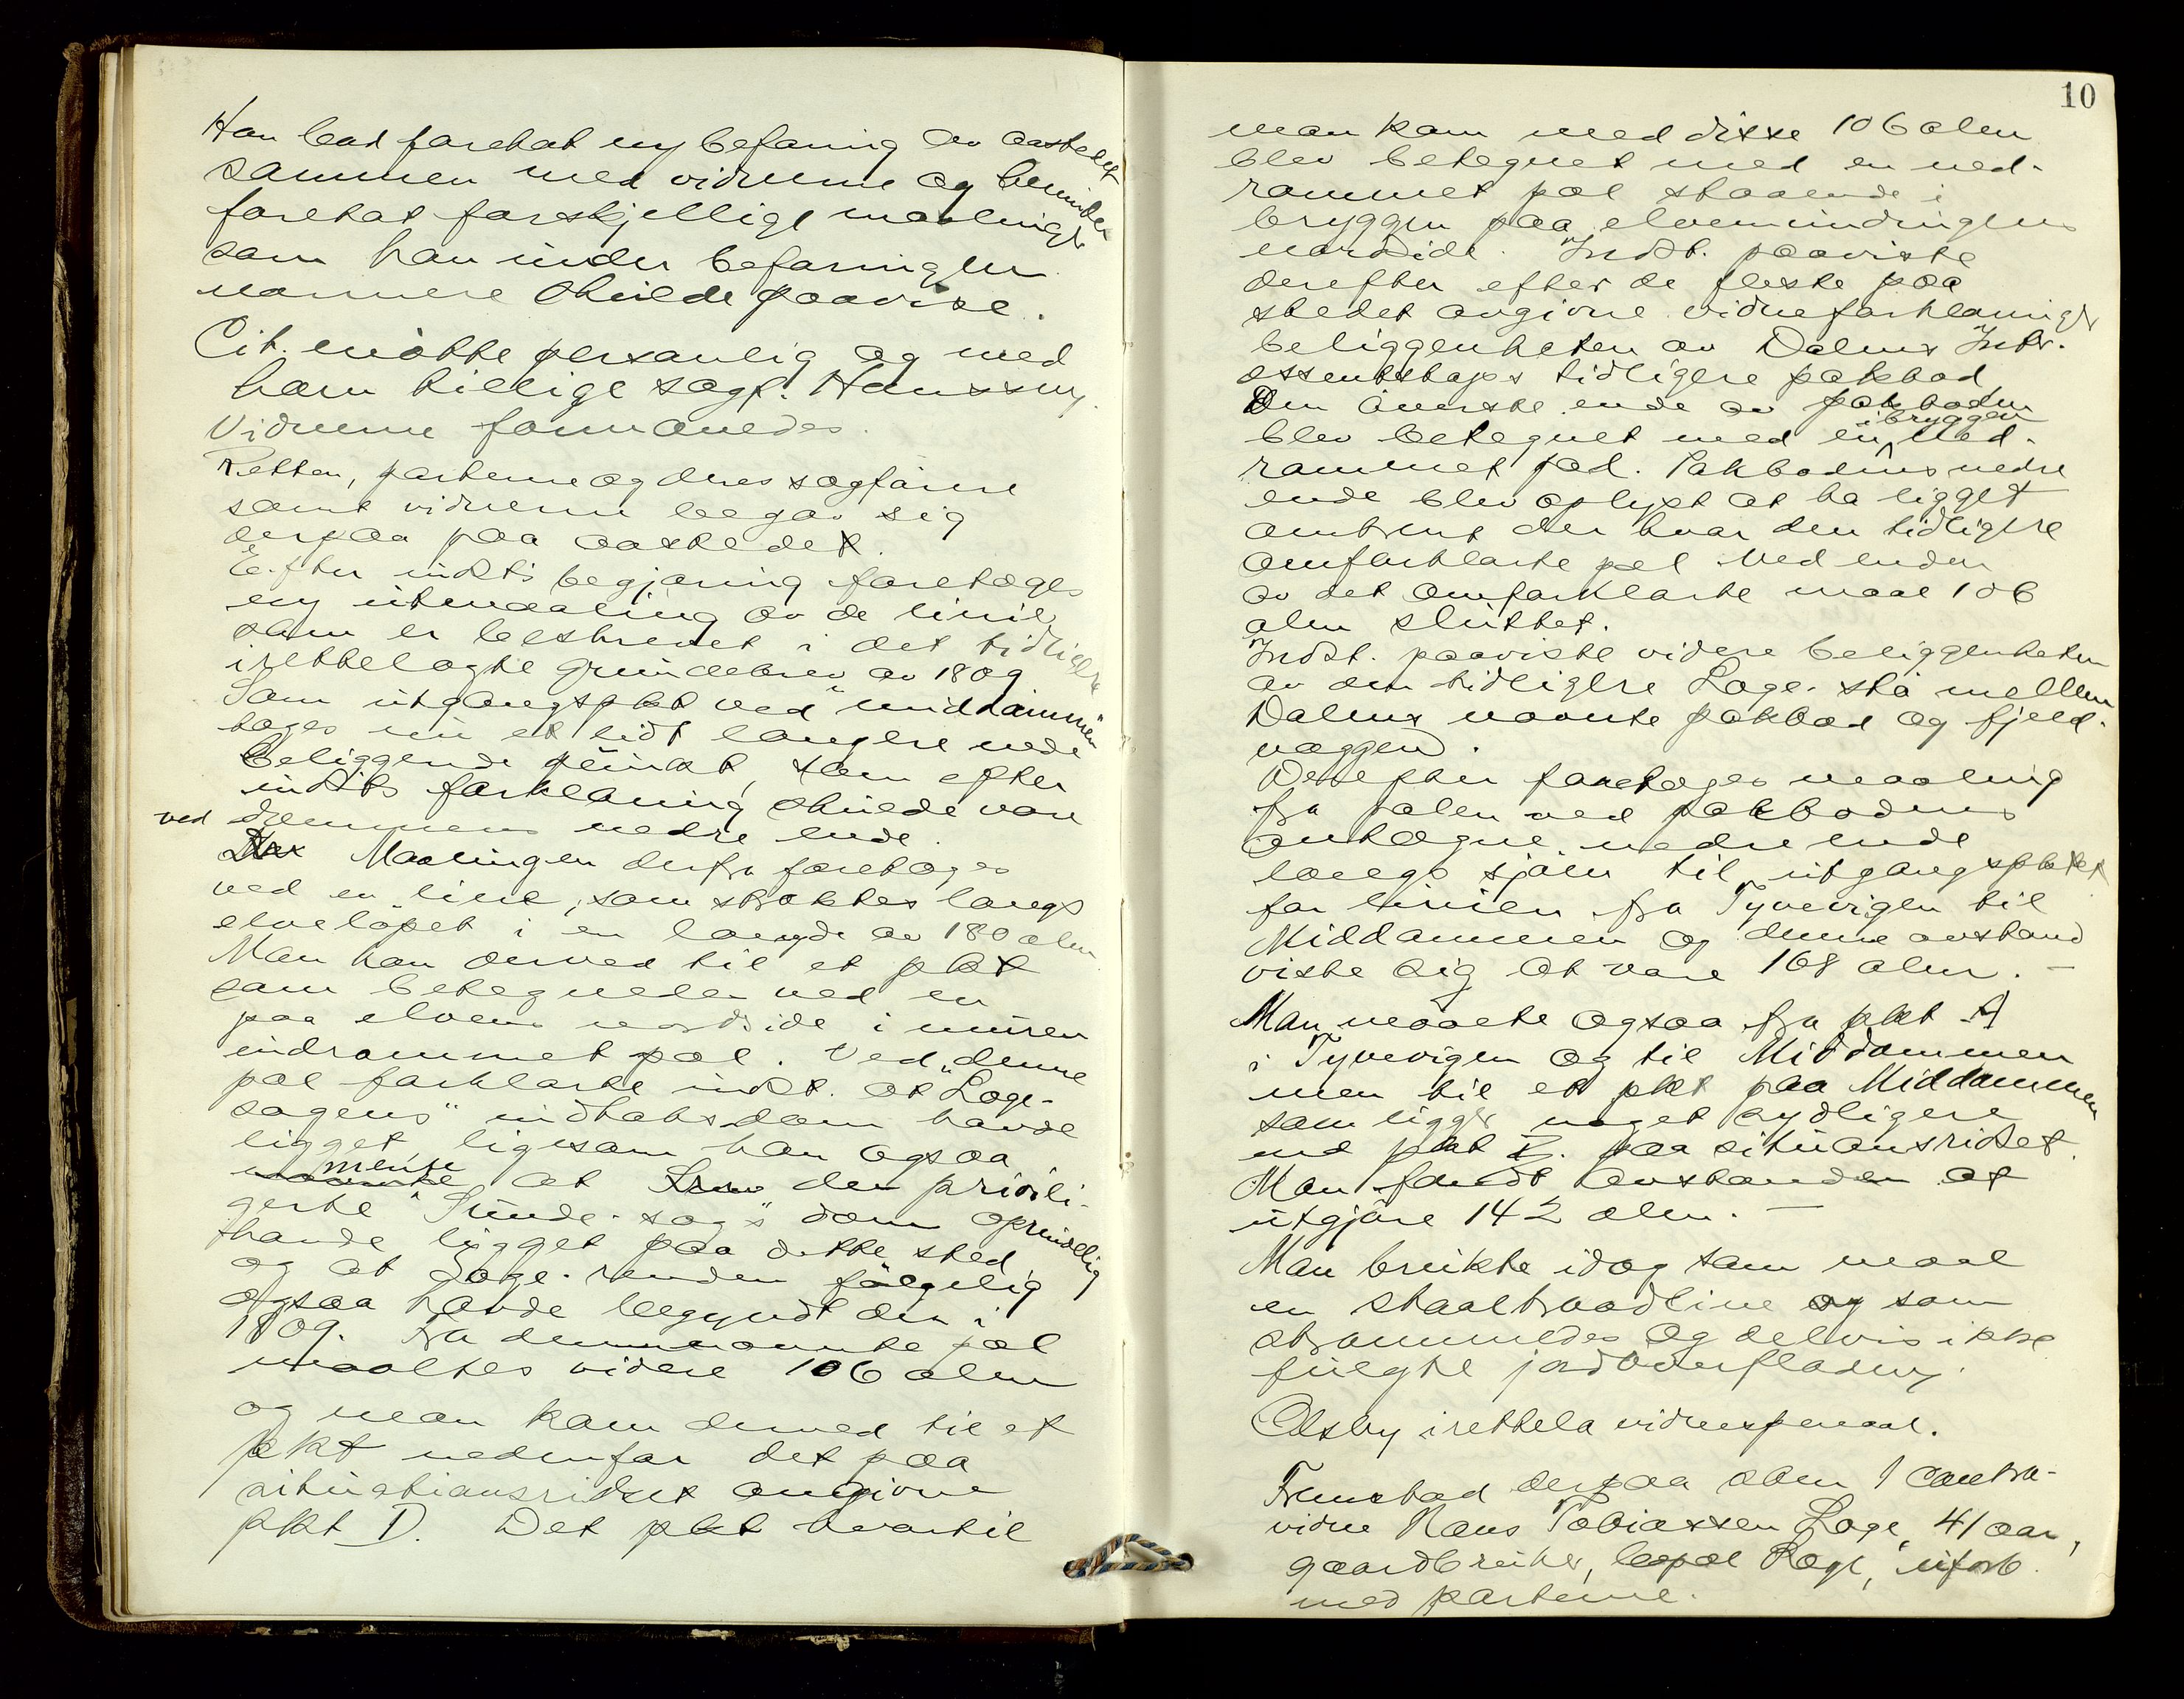 Han bad foretat ny befaring av aastedet
sammen med vidnerne og herunder
foretat forskjellige maalinger
som han under befaringen
nærmere skulde paavise.
Cit. møtte personlig og med
ham tillige sagf. Hanssen.
Vidnerne formanedes.
Retten, parterne og deres sagførere
samt vidnerne begav sig
derpaa paa aastedet.
Efter indst's begjæring foretoges
ny utmaaling av de linie
som er beskrevet i det tidligere
irettelagte grundebrev av 1809
Som utgangspkt ved "middammen
toges nu et lidt længere nede
beliggende punkt, som efter
indsts forklaring skulde være
ved dæmmens nedre ende.
Maalingen derfra foretoges
ved en line, som straktes langs
elveløpet i en længde av 180 alen
Man kom derved til et pkt
som betegnedes ved en
paa elvens nordside i muren
indrammet pæl. Ved denne
pæl forklarte indst. at "Loge-
sagens" indtaksdam havde
ligget ligesom han ogsaa
mente at den privili-
gerte "Sunde-sag's" dam oprindelig
havde ligget paa dette sted
og at Loge-renden følgelig
ogsaa havde begyndt der i
1809. Fra dennævnte pæl
maaltes videre 106 alen
og man kom derved til et
pkt nedenfor det paa
situationsridset angivne
pkt D. Det pkt hvortil
10
man kom med disse 106 alen
blev betegnet med en ned-
rammet pæl staaende i
bryggen paa elvemundingens
nordside. Indst. paaviste
derefter efter de fleste paa
stedet avgivne vidneforklaringer
beliggenheten av Dalens Intr.
essentskaps tidligere pakbod
Den øverste ende av pakboden
i bryggen
blev betegnet med en ned-
rammet pæl. Pakbodens nedre
ende blev oplyst at ha ligget
omtrent der hvor den tidligere
omforklarte pæl ved enden
av det omforklarte maal 106
alen sluttet.
Indst. paaviste videre beliggenheten
av den tidligere Loge-stø mellem
Dalens nævnte pakbod og fjeld-
væggen.
Derefter foretoges maaling
fra pælen ved pakbodens
antagne nedre ende
langs sjøen til utgangspktet
for linien fra Tyvevigen til
Middammen og denne avstand
viste sig at være 168 alen. —
Man maalte ogsaa fra pkt A
i Tyvevigen og til Middammen
men til et pkt paa Middammen
som ligger noget sydligere
end pkt paa situansridset.
Man fandt avstanden at
utgjøre 142 alen. —
Man brukte idag som maal
en staaltraadline og som
strammedes og delvis ikke
fulgte jordoverfladen.
Citsby irettela vidnespmaal.
Fremstod derpaa som 1 contra-
vidne Hans Tobiassen Loge, 41 aar,
gaardbruker, bopæl Loge, uforb
med parterne.